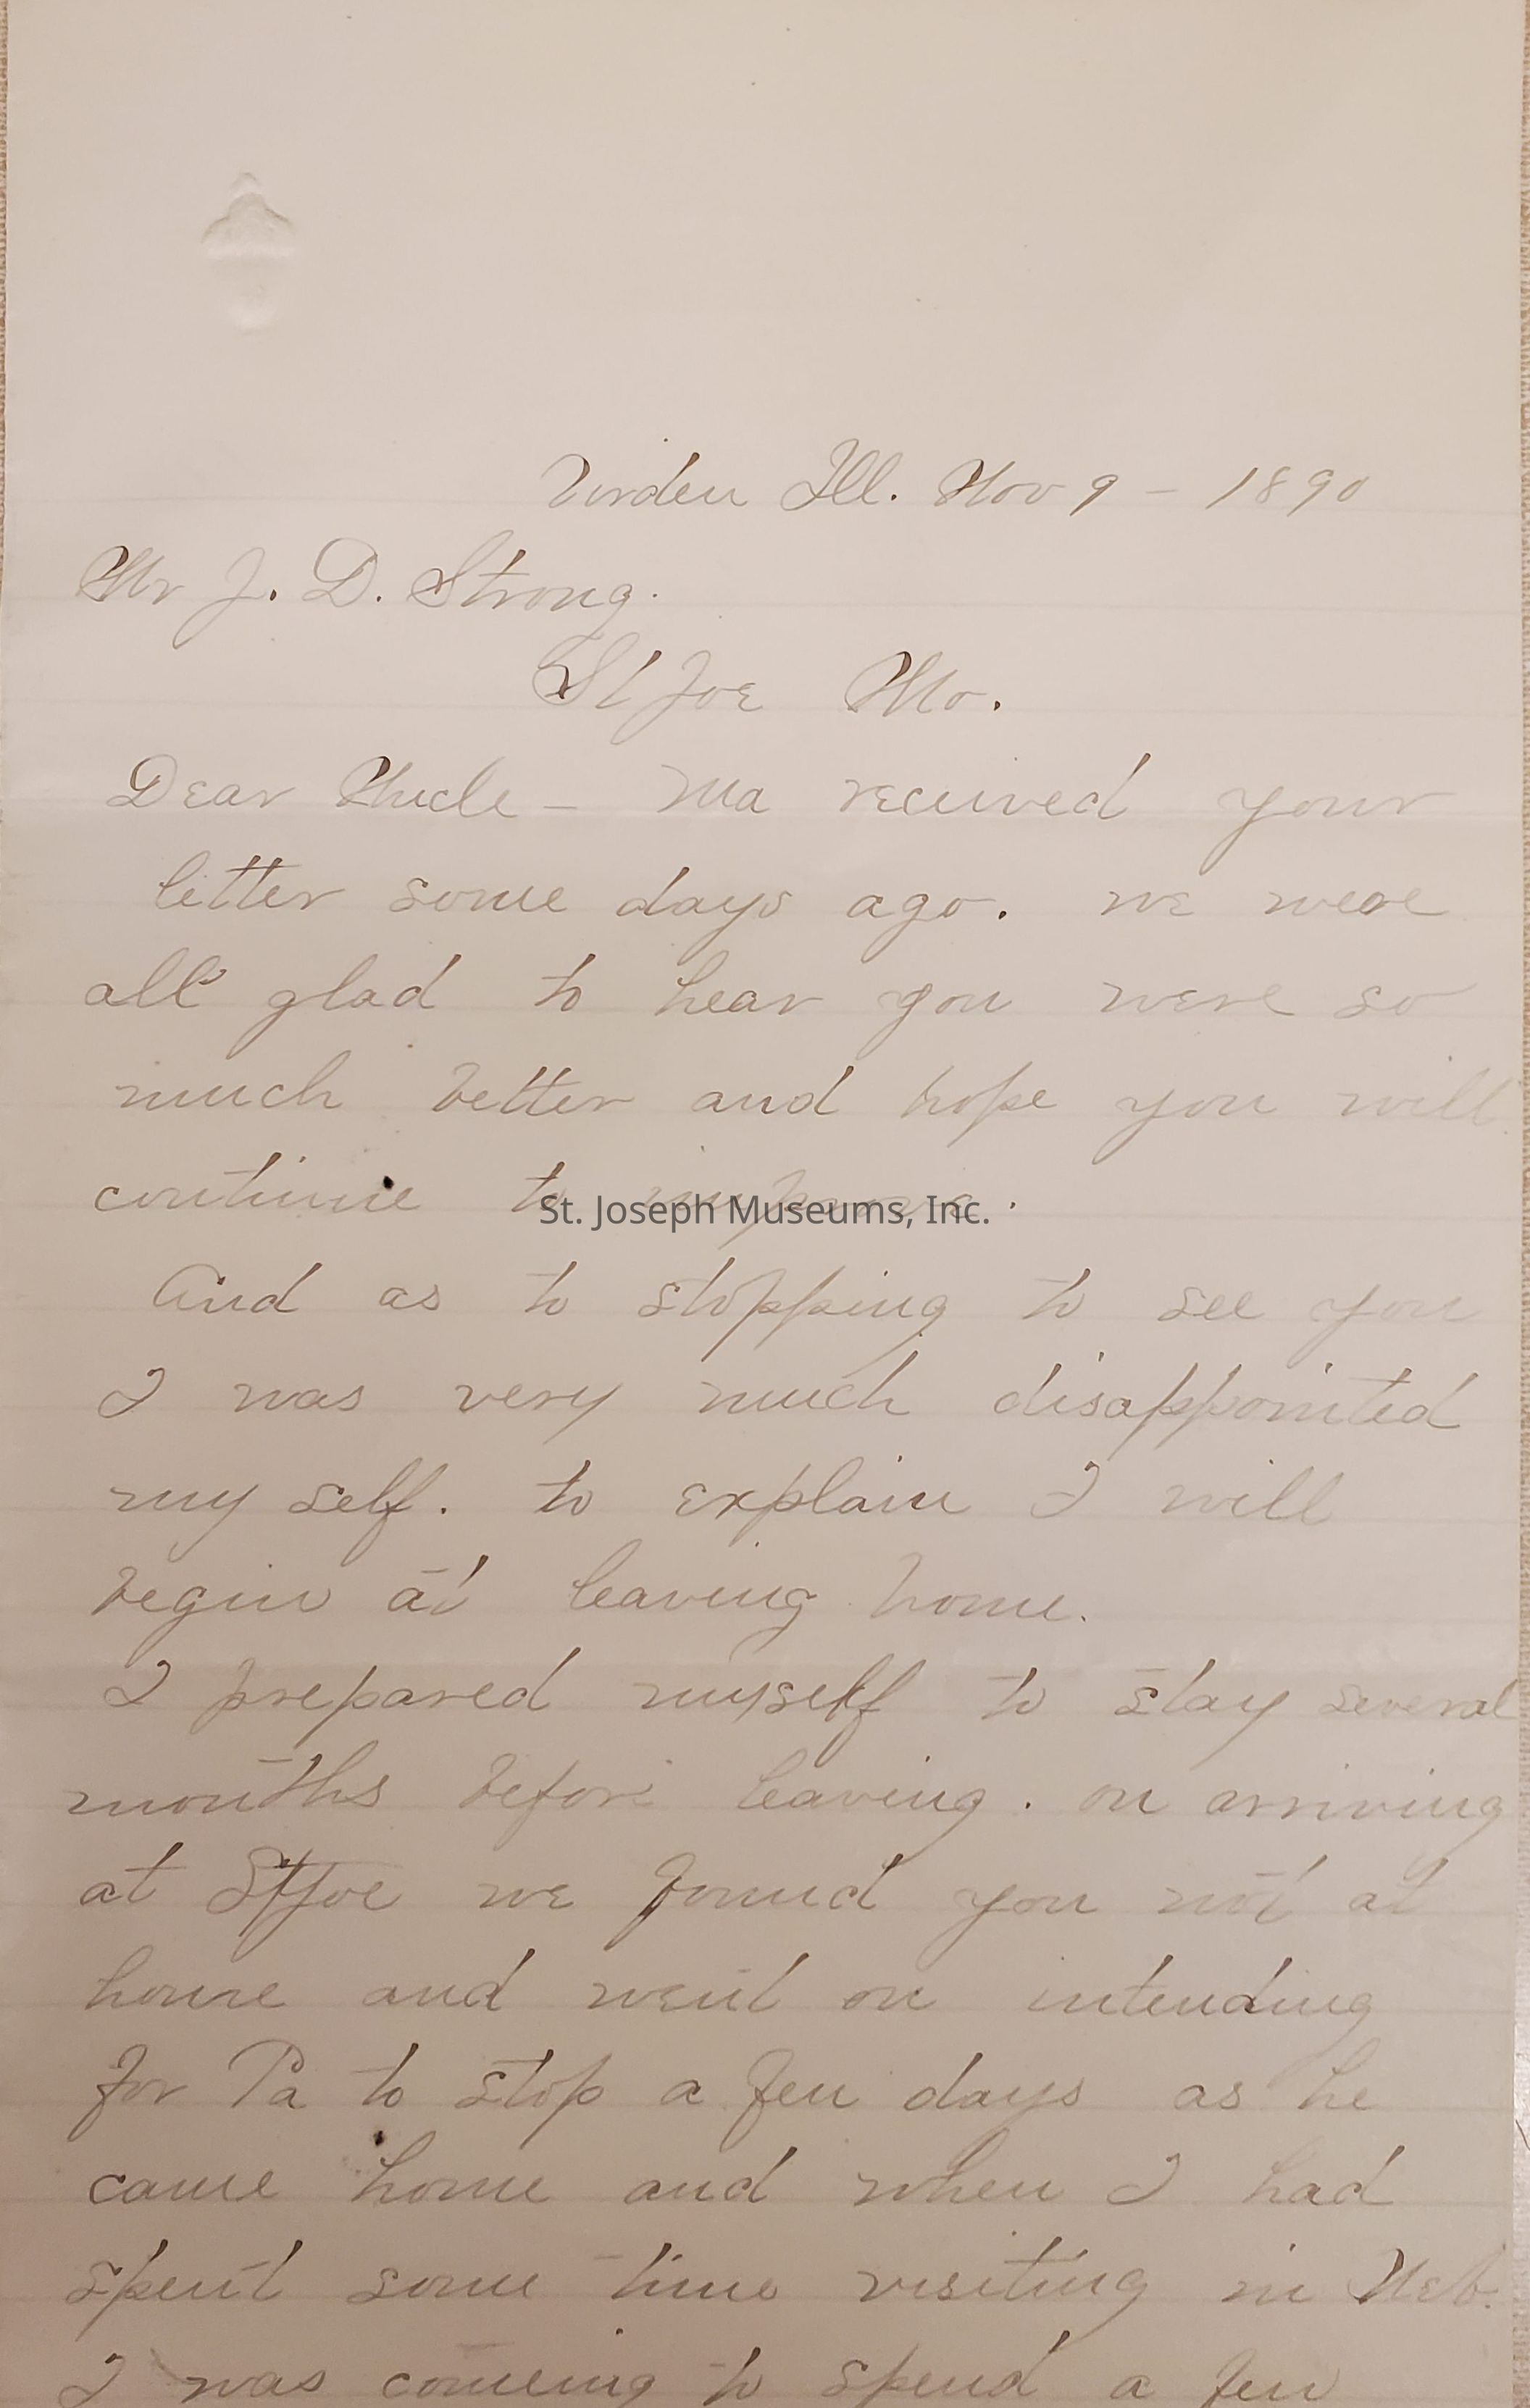 Virden Ill. Nov 9 - 1890
Mr J. D. Strong.
St Joe Mo.
Dear Uncle - Ma received your
letter some days ago. we were
all glad to hear you were so
much better and hope you will
continue to improve.
St. Joseph Museums, Inc.
And as to stopping to see you
I was very much disappointed
my self. to explain I will
begin at leaving home.
I prepared myself to stay several
months before leaving. on arriving
at St Joe we found you not at
home and went on intending
for Pa to stop a few days as he
came home and when I had
spent some time visiting in Neb.
I was comeing to spend a few